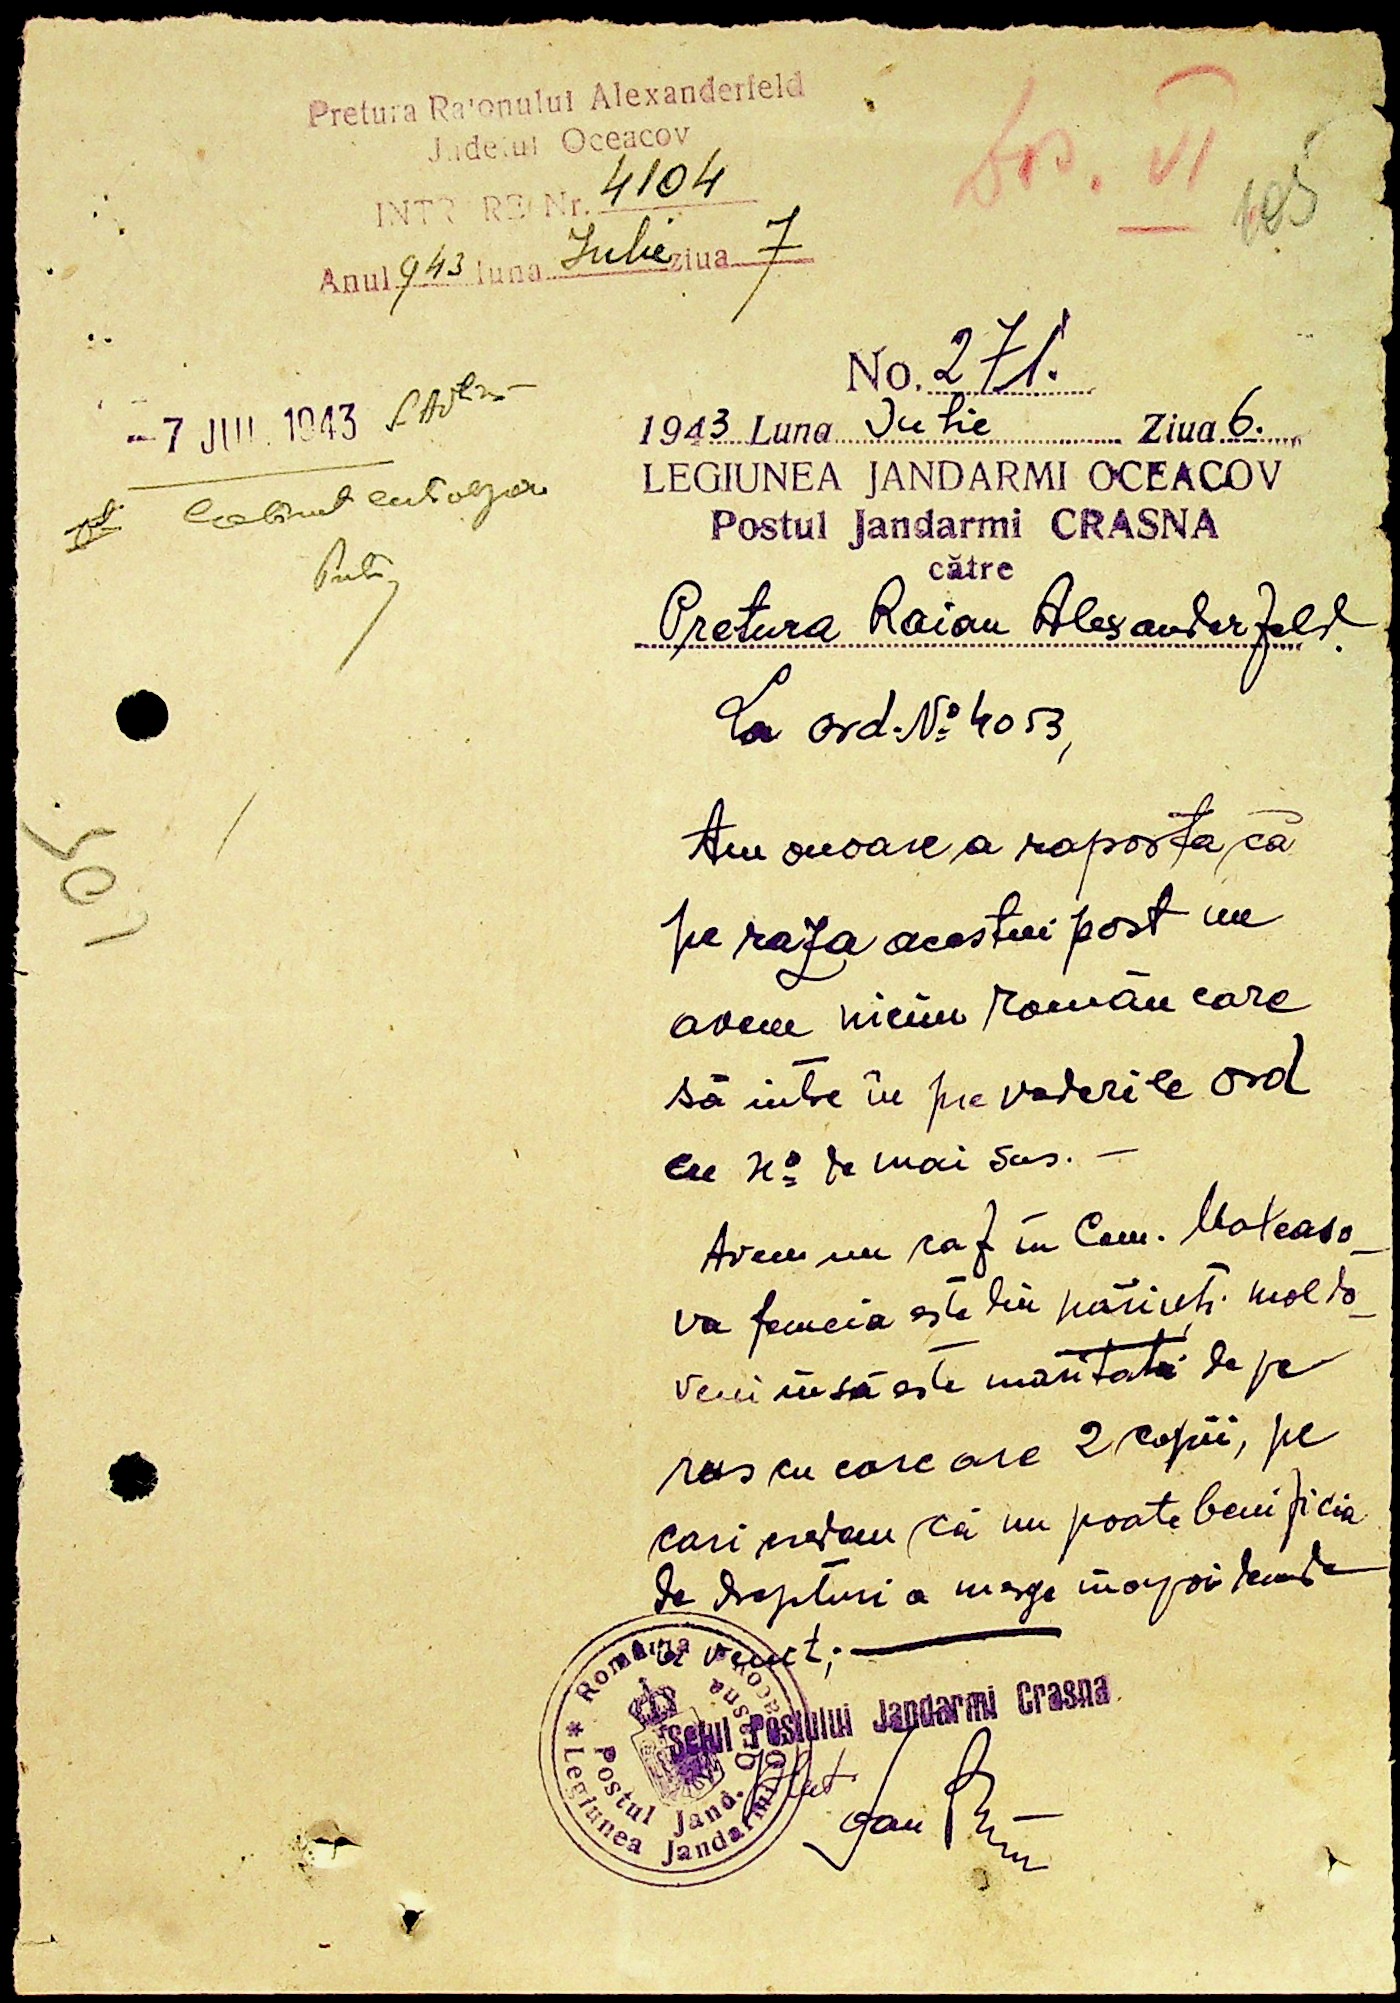 Pretura Raionului Alexanderfeld
Judetul Oceacov
INTRARE Nr. 4104
Anul 943 luna Iulie ziua 7
Dos. VI
105
No. 271.
1943 Luna Iulie Ziua 6.
-7 JUL. 1943
LEGIUNEA JANDARMI OCEACOV
Postul Jandarmi CRASNA
către
Pretura Raion Alexanderfeld.
La ord. No 4053,
Am onoare a raporta că
pe raza acestui post nu
avem niciun român care
să intre în prevederile ord
cu No de mai sus. —
105
Avem un caz în Com.
va femeia este din părinți moldo-
veni însă este măritată de pe
rus cu care are 2 copii, pe
cari credem că nu poate benificia
de drepturi a merge înapoi de unde
a venit; —
Seful Postului Jandarmi Crasna
România
* Legiunea Jandarmi Oceacov
Postul Jand. Crasna
Plut
Ioan